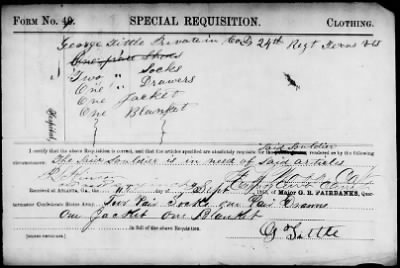 FORM No. 40. SPECIAL REQUISITION. CLOTHING.
George Tittle Private in Co D 24th Regt Texas Vols
One pair Shoes
Two " Socks
One " Drawers
One Jacket
One Blanket
I certify that the above Requisition is correct, and that the articles specified are absolutely requisite for the Said Souldier rendered so by the following
circumstances:
The Said Souldier is in need of Said articles
Received at Atlanta, Ga. Sept 186 , of Major G. R. FAIRBANKS, Quar-
termaster Confederate States Army, Two Pair Socks one Pair Drawers
One Jacket One Blanket
in full of the above Requisition.
(SIGNED IN DUPLICATE.)
G Tittle